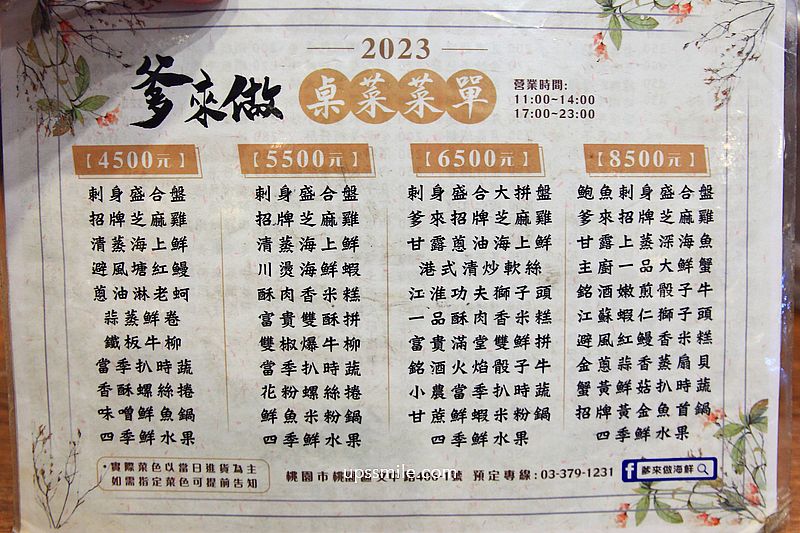 2023
爹來做 桌菜菜單
營業時間:
11:00~14:00
17:00~23:00
【4500元】
刺身盛合盤
招牌芝麻雞
清蒸海上鮮
避風塘紅鰻
蔥油淋老蚵
蒜蒸鮮卷
鐵板牛柳
當季扒時蔬
香酥螺絲捲
味噌鮮魚鍋
四季鮮水果
【5500元】
刺身盛合盤
招牌芝麻雞
清蒸海上鮮
川燙海鮮蝦
酥肉香米糕
富貴雙酥拼
雙椒爆牛柳
當季扒時蔬
花粉螺絲捲
鮮魚米粉鍋
四季鮮水果
【6500元】
刺身盛合大拼盤
爹來招牌芝麻雞
甘露蔥油海上鮮
港式清炒軟絲
江淮功夫獅子頭
一品酥肉香米糕
富貴滿堂雙鮮拼
銘酒火焰骰子牛
小農當季扒時蔬
甘蔗鮮蝦米粉鍋
四季鮮水果
【8500元】
鮑魚刺身盛合盤
爹來招牌芝麻雞
甘露上蒸深海魚
主廚一品大鮮蟹
銘酒嫩煎骰子牛
江蘇蝦仁獅子頭
避風紅鰻香米糕
金蔥蒜香蒸扇貝
蟹黃鮮菇扒時蔬
招牌黃金魚首鍋
四季鮮水果
・實際菜色以當日進貨為主
如需指定菜色可提前告知
桃園市桃園區文中路496-1號 預定專線:03-379-1231
f 爹來做海鮮
upssmile.com